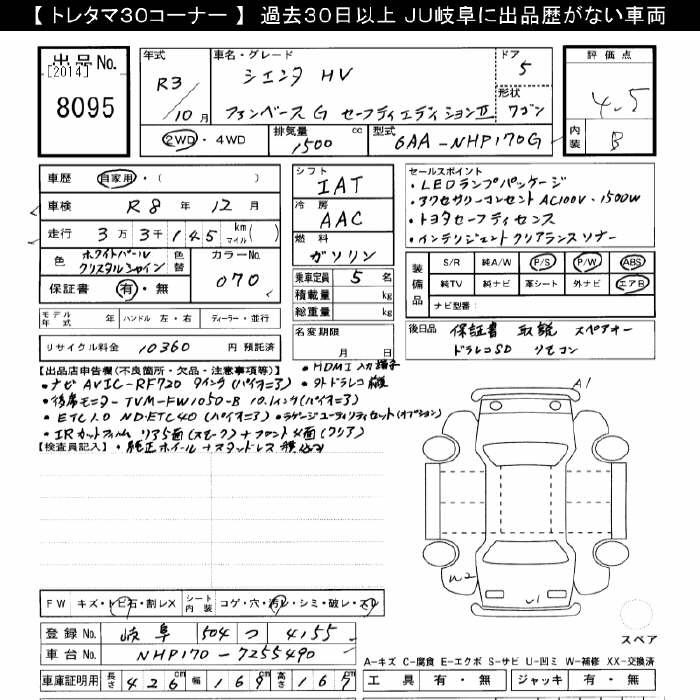 【 トレタマ30コーナー 】 過去30日以上 JU岐阜に出品歴がない車両
出品No.
[2014]
8095
年式
R3
10月
車名・グレード
シエンタ HV
ファンベースG セーフティエディションⅡ
ドア
5
形状
ワゴン
評価点
4.5
内装
B
2WD・4WD
排気量
1500 cc
型式
6AA-NHP170G
車歴 自家用・( )
車検 R8年 12月
走行 3万3千145 km マイル( )
色 ホワイトパールクリスタルシャイン
色替
カラーNo.
070
保証書 有・無
モデル年式 年 ハンドル 左・右 ディーラー・並行
リサイクル料金 10360 円 預託済
シフト
IAT
冷房
AAC
燃料
ガソリン
乗車定員 5 名
積載量 kg
総重量 kg
名変期限
月 日
セールスポイント
・LEDランプパッケージ
・アクセサリーコンセント AC100V・1500W
・トヨタセーフティセンス
・インテリジェントクリアランスソナー
装備品
S/R 純A/W P/S P/W ABS
純TV 純ナビ 革シート 外ナビ エアB
ナビ型番:
後日品
保証書 取説 スペアキー
ドラレコSD リモコン
【出品店申告欄(不良箇所・欠品・注意事項等)】
・HDMI入力端子
・ナビ AVIC-RF720 9インチ(パイオニア)
・外ドラレコ 前後
・後席モニター TVM-FW1050-B 10.1インチ(パイオニア)
・ETC1.0 ND-ETC40(パイオニア)
・ラゲージユーティリティセット(オプション)
・IRカットフィルム リア5面(スモーク)+フロント4面(クリア)
【検査員記入】
・純正ホイール+スタッドレス積込み
A1
W2
U1
FW キズ・トビ石・割レX
シート内装 コゲ・穴・汚レ・シミ・破レ・スレ
登録No. 岐阜 504 つ 4155
車台No. NHP170-7255490
車庫証明用 長さ 426cm 幅 169cm 高さ 167
スペア
A-キズ C-腐食 E-エクボ S-サビ U-凹ミ W-補修 XX-交換済
工具 有・無 ジャッキ 有・無